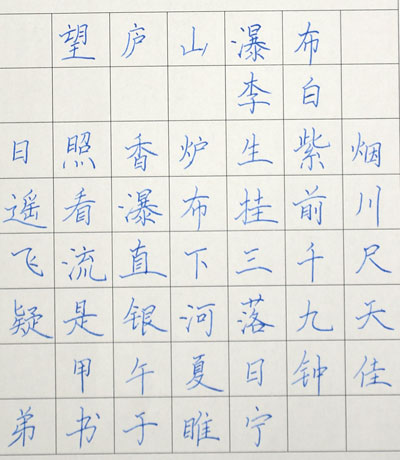 望庐山瀑布
李白
日照香炉生紫烟
遥看瀑布挂前川
飞流直下三千尺
疑是银河落九天
甲午夏日钟佳
弟书于睢宁